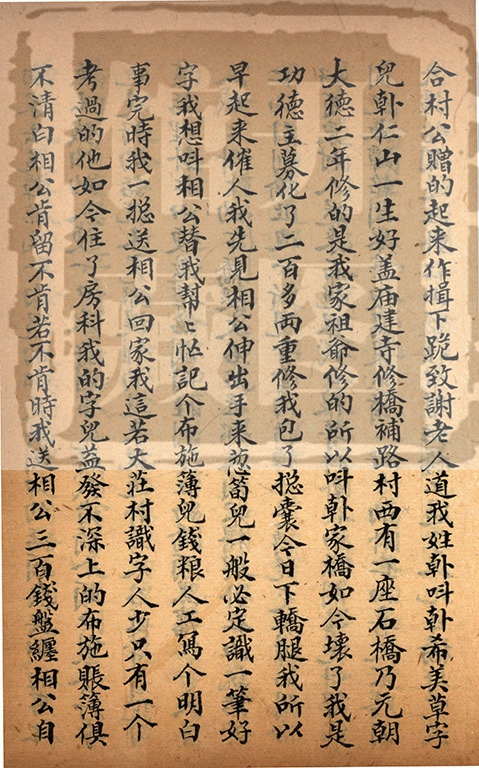 合村公贈的起来作揖下跪致謝老人道我姓卦呌卦希美草字
兒卦仁山一生好盖庙建寺修橋補路村西有一座石橋乃元朝
大德二年修的是我家祖爺修的所以呌卦家橋如今壊了我是
功德主募化了二百多両重修我包了捴囊今日下轎腿我所以
早起来催人我先見相公伸出手来葱蒟兒一般必定識一筆好
字我想呌相公替我幫〻忙記个布施薄兒錢粮人工寫个明白
事完時我一捴送相公回家我這若大莊村識字人少只有一个
考過的他如今住了房科我的字兒益發不深上的布施賬薄俱
不清白相公肯留不肯若不肯時我送相公三百錢盤纏相公自